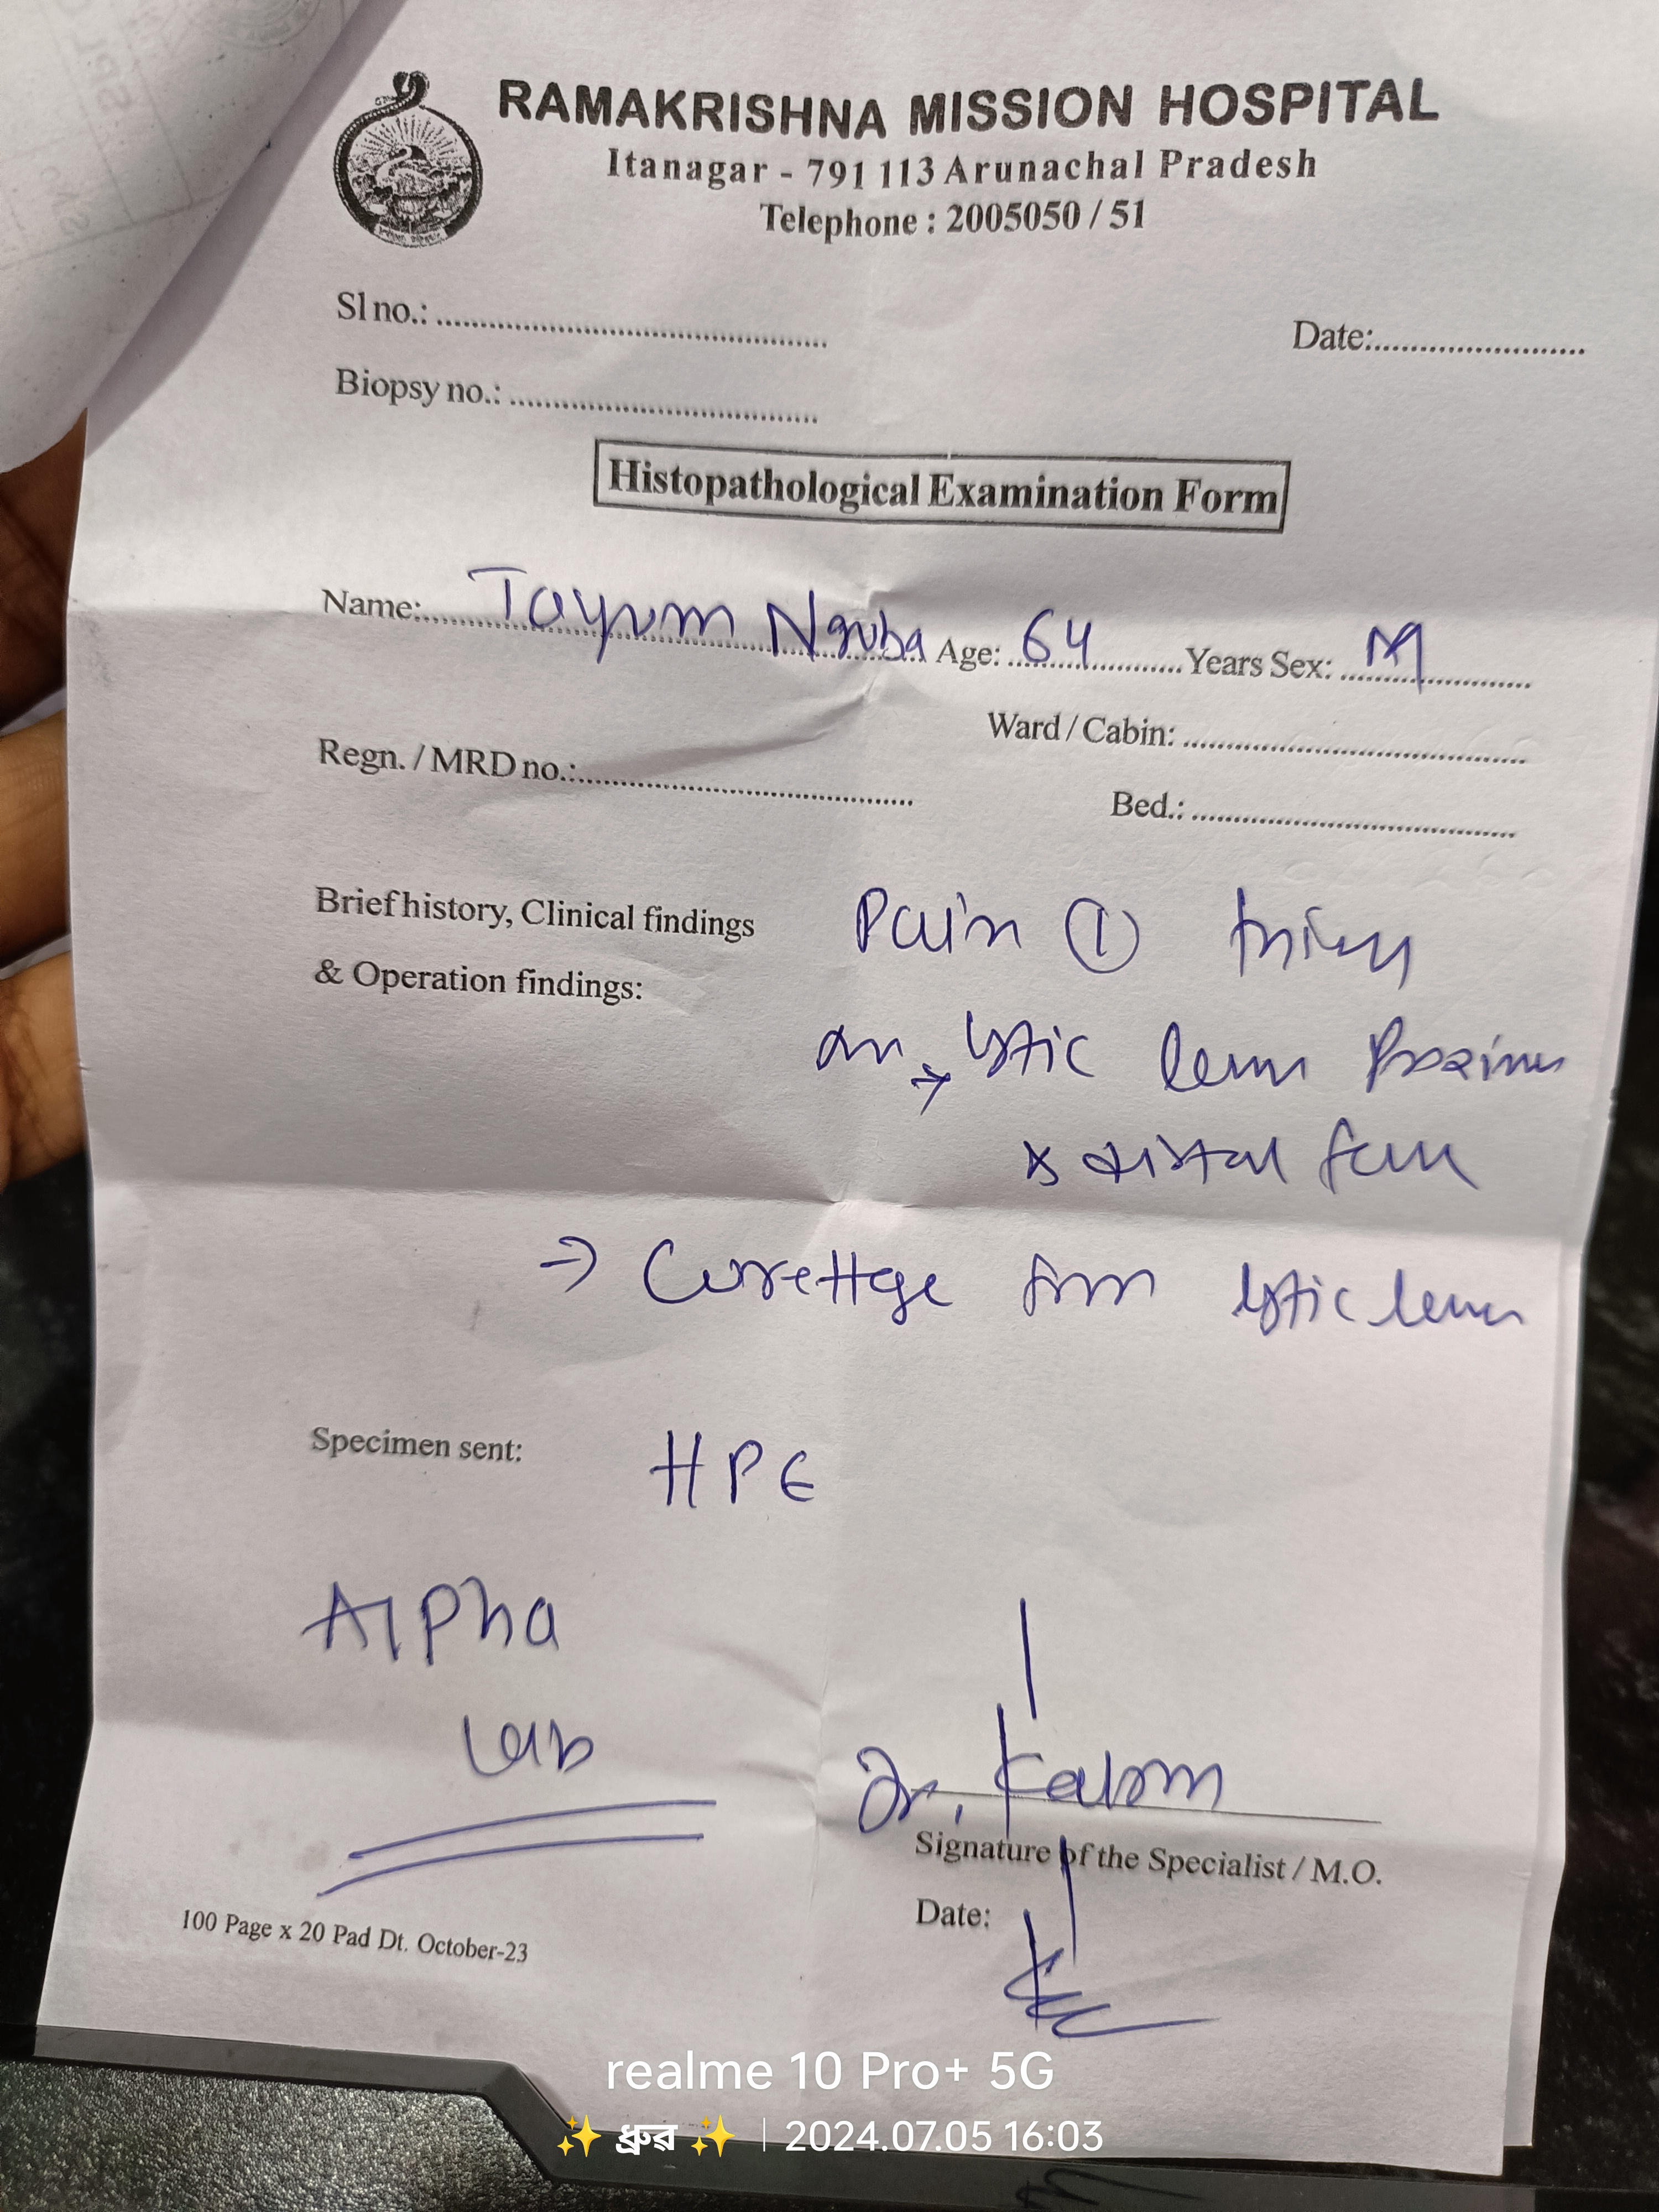 RAMAKRISHNA MISSION HOSPITAL
Itanagar - 791 113 Arunachal Pradesh
Telephone : 2005050 / 51
Sl no.: Date:
Biopsy no.:
Histopathological Examination Form
Name: Tayum Nguba Age: 64 Years Sex: M
Ward / Cabin:
Regn. / MRD no.:
Bed.:
Brief history, Clinical findings Pain
& Operation findings:
lytic
& distal
→ Curettge from lytic
Specimen sent: HPE
Alpha
Lab
Dr.
Signature of the Specialist / M.O.
Date:
100 Page x 20 Pad Dt. October-23
realme 10 Pro+ 5G
✨ ধ্রুৱ ✨ | 2024.07.05 16:03